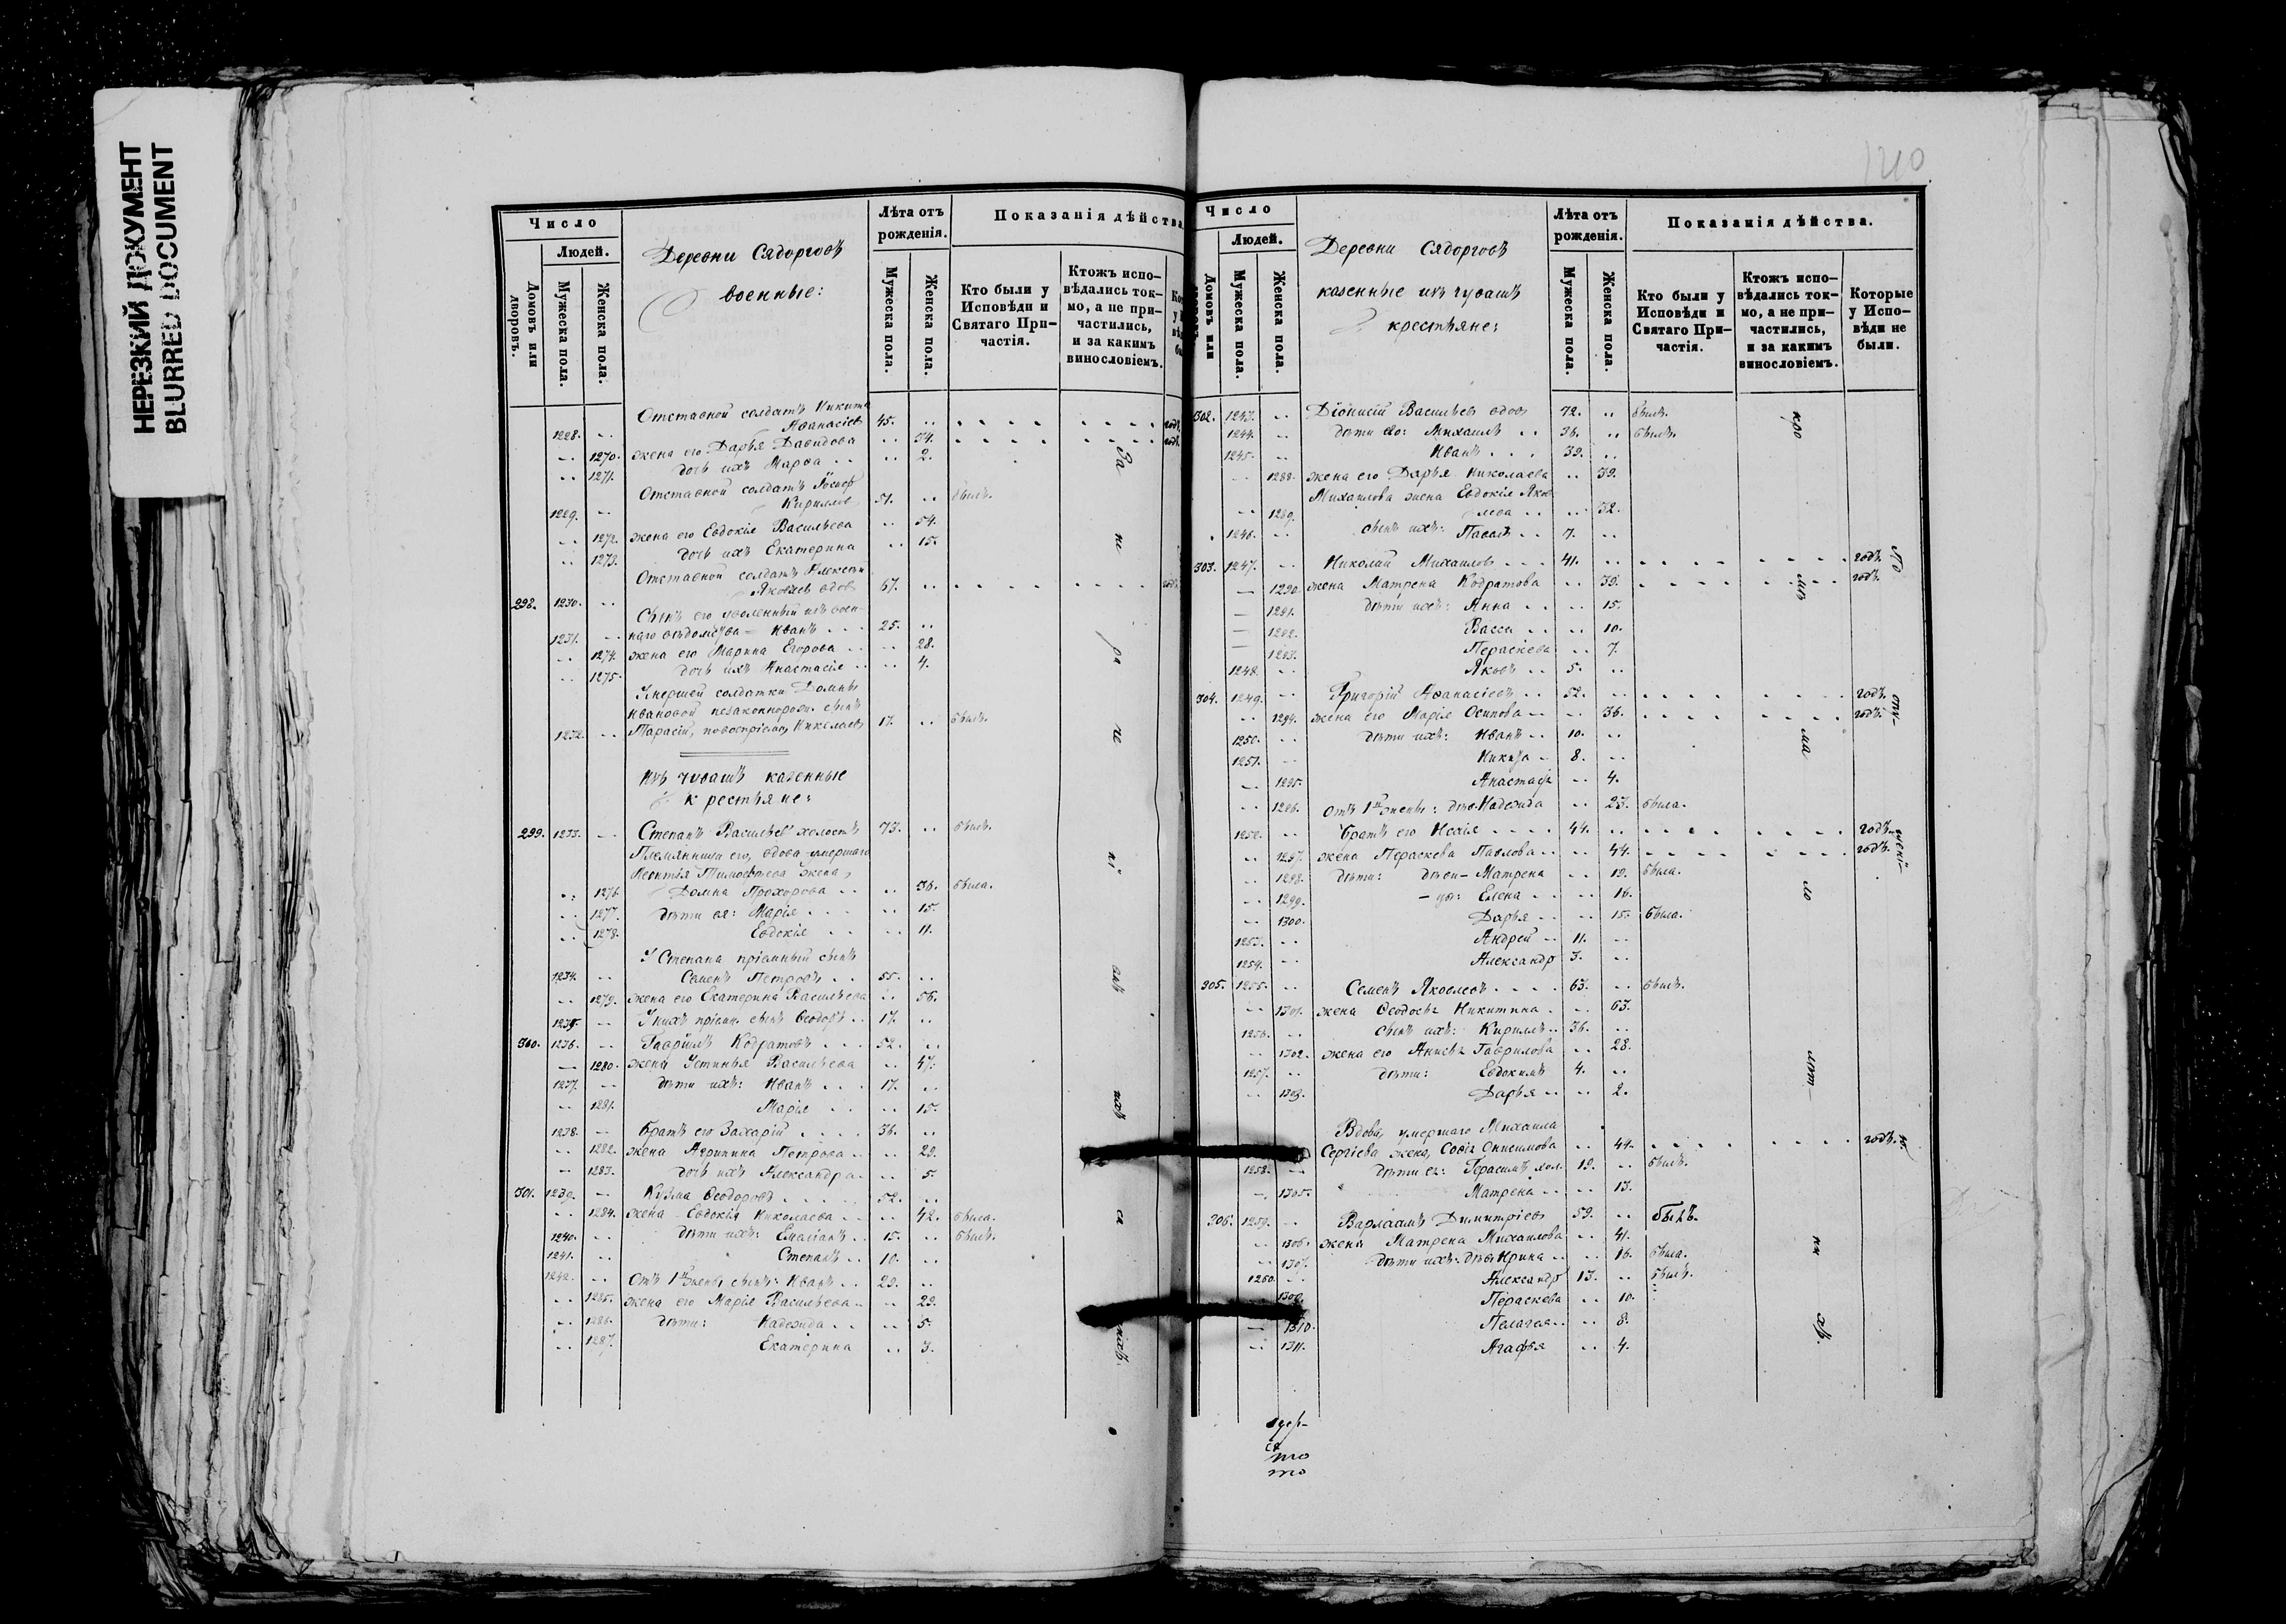 НЕРЕЗКИЙ ДОКУМЕНТ
BLURRED DOCUMENT
Число
Людей.
Домовъ или дворовъ.
Мужеска пола.
Женска пола.
Деревни Сядорговъ
военные:
Лѣта отъ рожденія.
Мужеска пола.
Женска пола.
Показанія дѣйства
Кто были у Исповѣди и Святаго Причастія.
Ктожъ исповѣдались токмо, а не причастились, и за какимъ винословіемъ.
Отставной солдатъ Никита
1228. Афанасіев 45.
1270. жена его Дарья Давидова 34.
1271. дочь ихъ Марфа 2.
Отставной солдатъ
1229. Кириллов 51. былъ.
1272. жена его Евдокія Васильева 54.
1273. дочь ихъ Екатерина 15.
Отставной солдатъ Алексѣй
298. 1230. Яковлев вдов 67.
Сынъ его уволенный изъ воен-
1231. наго вѣдомства Иванъ 25.
1274. жена его Марина Егорова 28.
1275. дочь ихъ Анастасія 4.
Умершей солдатки Домны
Ивановой незаконнорожд. сынъ
1232. Тарасій, по воспріем. Николаев 17. былъ.
Изъ чувашъ казенные
крестьяне:
299. 1233. Степанъ Васильев холостъ 73. былъ.
Племянница его, вдова умершаго
Леонтія Тимофѣева жена,
1276. Домна Прохорова 36. была.
1277. дѣти ея: Марія 15.
1278. Евдокія 11.
У Степана пріемный сынъ
1234. Семенъ Петровъ 55.
1279. жена его Екатерина Васильева 56.
1235. У нихъ пріемн. сынъ Ѳеодоръ 17.
300. 1236. Гавріилъ Кодратовъ 52.
1280. жена Устинья Васильева 47.
1237. дѣти ихъ: Иванъ 17.
1281. Марія 15.
1238. Братъ его Захарій 36.
1282. жена Агрипина Петрова 29.
1283. дочь ихъ Александра 5.
301. 1239. Кузма Ѳеодоровъ 52.
1284. жена Евдокія Николаева 42. была.
1240. дѣти ихъ: Емаліанъ 15. былъ.
1241. Степанъ 10.
1242. Отъ 1й жены сынъ: Иванъ 29.
1285. жена его Марія Васильева 29.
1286. дѣти: Надежда 5.
1287. Екатерина 3.
120
Число
Людей.
Домовъ или
Мужеска пола.
Женска пола.
Деревни Сядорговъ
казенные изъ чувашъ
крестьяне:
Лѣта отъ рожденія.
Мужеска пола.
Женска пола.
Показанія дѣйства.
Кто были у Исповѣди и Святаго Причастія.
Ктожъ исповѣдались токмо, а не причастились, и за какимъ винословіемъ.
Которые у Исповѣди не были.
302. 1243. Діонисій Васильев вдов 72. былъ.
1244. дѣти его: Михаилъ 36. былъ.
1245. Иванъ 39.
1288. жена его Дарья Николаева 39.
Михаилова жена Евдокія Яков
1289. лева 32.
1246. сынъ ихъ: Павелъ 7.
303. 1247. Николай Михаилов 41. годъ.
1290. жена Матрена Кодратова 39. годъ.
1291. дѣти ихъ: Анна 15.
1292. Васса 10.
1293. Пераскева 7.
1248. Яковъ 5.
304. 1249. Григорій Афанасіевъ 52. годъ.
1294. жена его Марія Осипова 36. годъ.
1250. дѣти ихъ: Иванъ 10.
1251. Никита 8.
1295. Анастасія 4.
1296. отъ 1й жены: дѣв. Надежда 23. была.
1252. Братъ его Исаія 44. годъ.
1297. жена Пераскева Павлова 44. годъ.
1298. дѣти: дѣви- Матрена 19. была.
1299. - цы: Елена 16.
1300. Дарья 15. была.
1253. Андрей 11.
1254. Александр 3.
305. 1255. Семенъ Яковлевъ 63. былъ.
1301. жена Ѳеодосья Никитина 63.
1256. сынъ ихъ: Кирилъ 36.
1302. жена его Анисья Гаврилова 28.
1257. дѣти: Евдокимъ 4.
1303. Дарья 2.
Вдова, умершаго Михаила
Сергіева жена, Софія Онисимова 44. годъ.
1258. дѣти ея: Герасимъ хол. 19. былъ.
1305. Матрена 13.
306. 1259. Варлаамъ Димитріев 59. былъ.
1306. жена Матрена Михаилова 41.
1307. дѣти ихъ: дѣв. Ирина 16. была.
1260. Александр 13. былъ.
1309. Пераскева 10.
1310. Пелагея 8.
1311. Агафья 4.